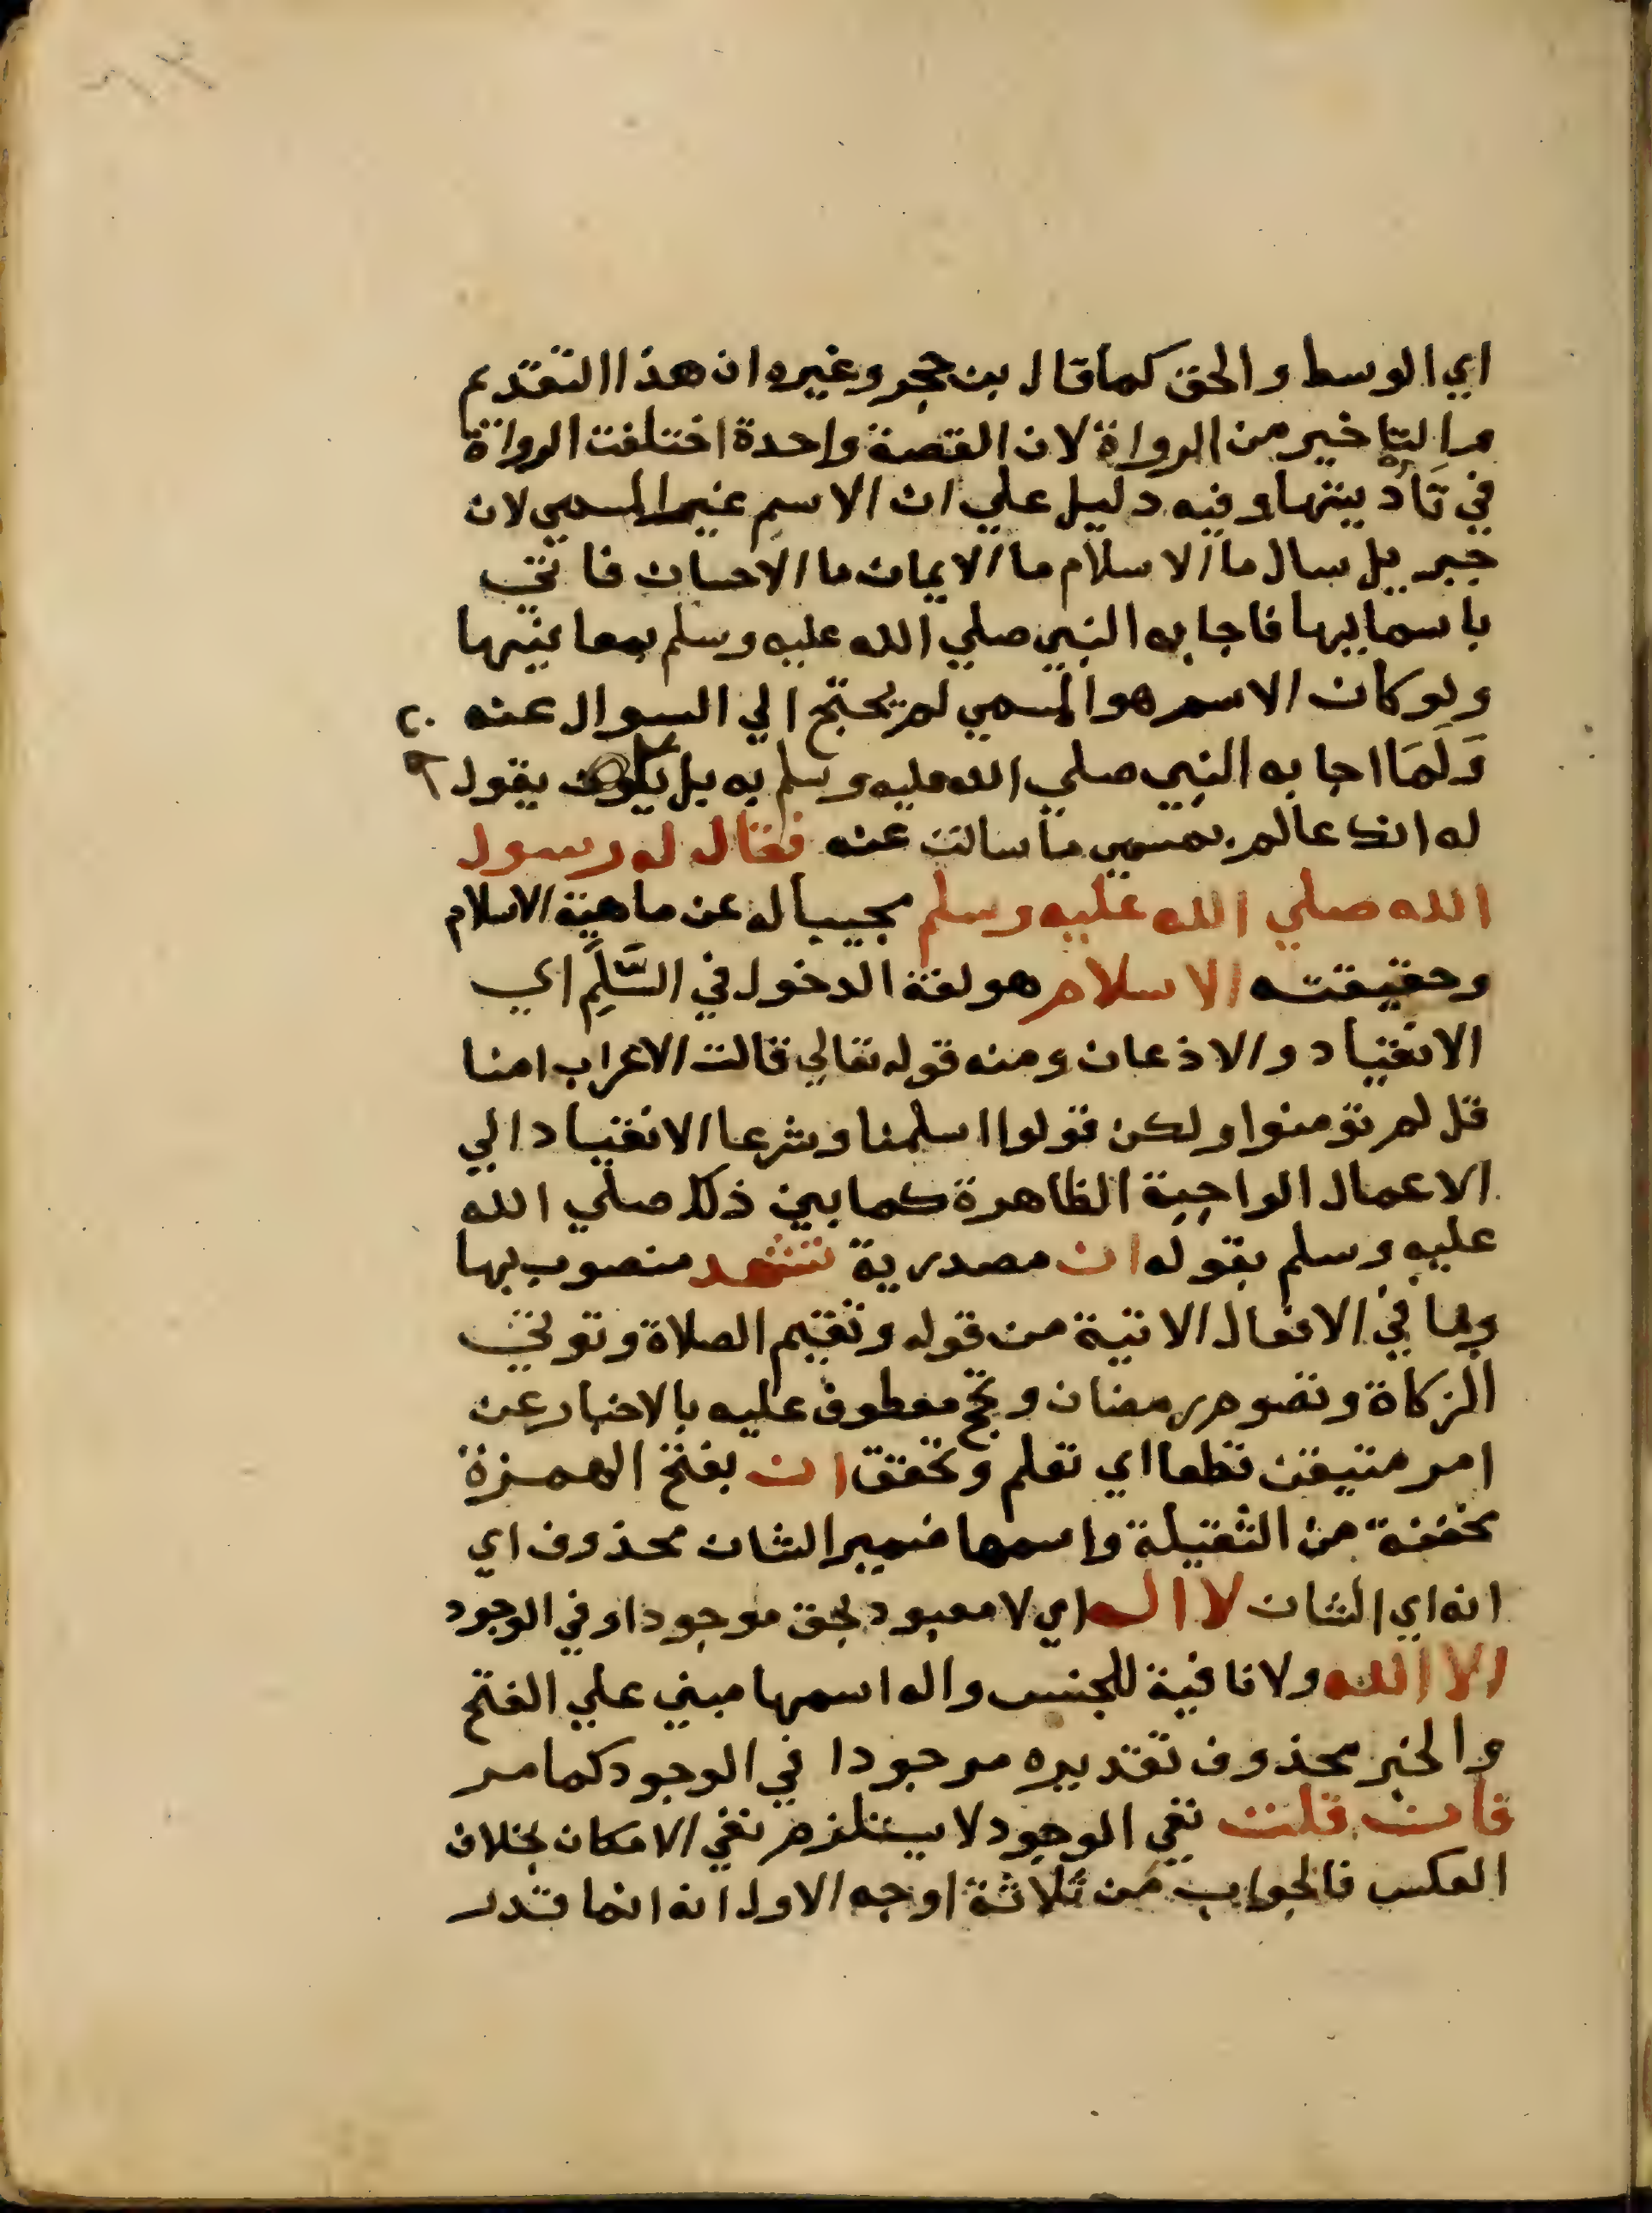 اي الوسط والحق كما قال بن حجر وغيره ان هذا التقديم
والتاخير من الرواة لان القصة واحدة اختلفت الرواة
في تَأدُيتها وفيه دليل علي ان الاسم غير المسمي لان
جبريل سال ما الاسلام ما الايمان ما الاحسان فاتي
باسماييها فاجابه النبي صلي الله عليه وسلم بمعانيها
ولو كان الاسم هو المسمي لم يحتج الي السوال عنه
وَلَمَا اجابه النبي صلي الله عليه وسلم به بل يقول
له انك عالم بمسمي ما سالت عنه فقال له رسول
الله صلي الله عليه وسلم مجيبا له عن ماهية الاسلام
وحقيقته الاسلام هو لغة الدخول في السَّلِم اي
الانقياد والاذعان ومنه قوله تعالي قالت الاعراب امنا
قل لم تومنوا ولكن قولوا اسلمنا وشرعا الانقياد الي
الاعمال الواجبة الظاهرة كما بين ذلك صلي الله
عليه وسلم بقوله ان مصدرية تشهد منصوب بها
وبها في الافعال الاتية من قوله وتقيم الصلاة وتوتي
الزكاة وتصوم رمضان وتحج معطوف عليه بالاخبار عن
امر متيقن قطعا اي تعلم وتحقق ان بفتح الهمزة
مخففة من الثقيلة واسمها ضمير الشان محذوف اي
انه اي الشان لا اله اي لا معبود بحق موجودا وفي الوجود
الا الله ولا نافية للجنس واله اسمها مبني علي الفتح
والخبر محذوف تقديره موجودا في الوجود كما مر
فان قلت نفي الوجود لا يستلزم نفي الامكان بخلاف
العكس فالجواب من ثلاثة اوجه الاول انه انما قدر